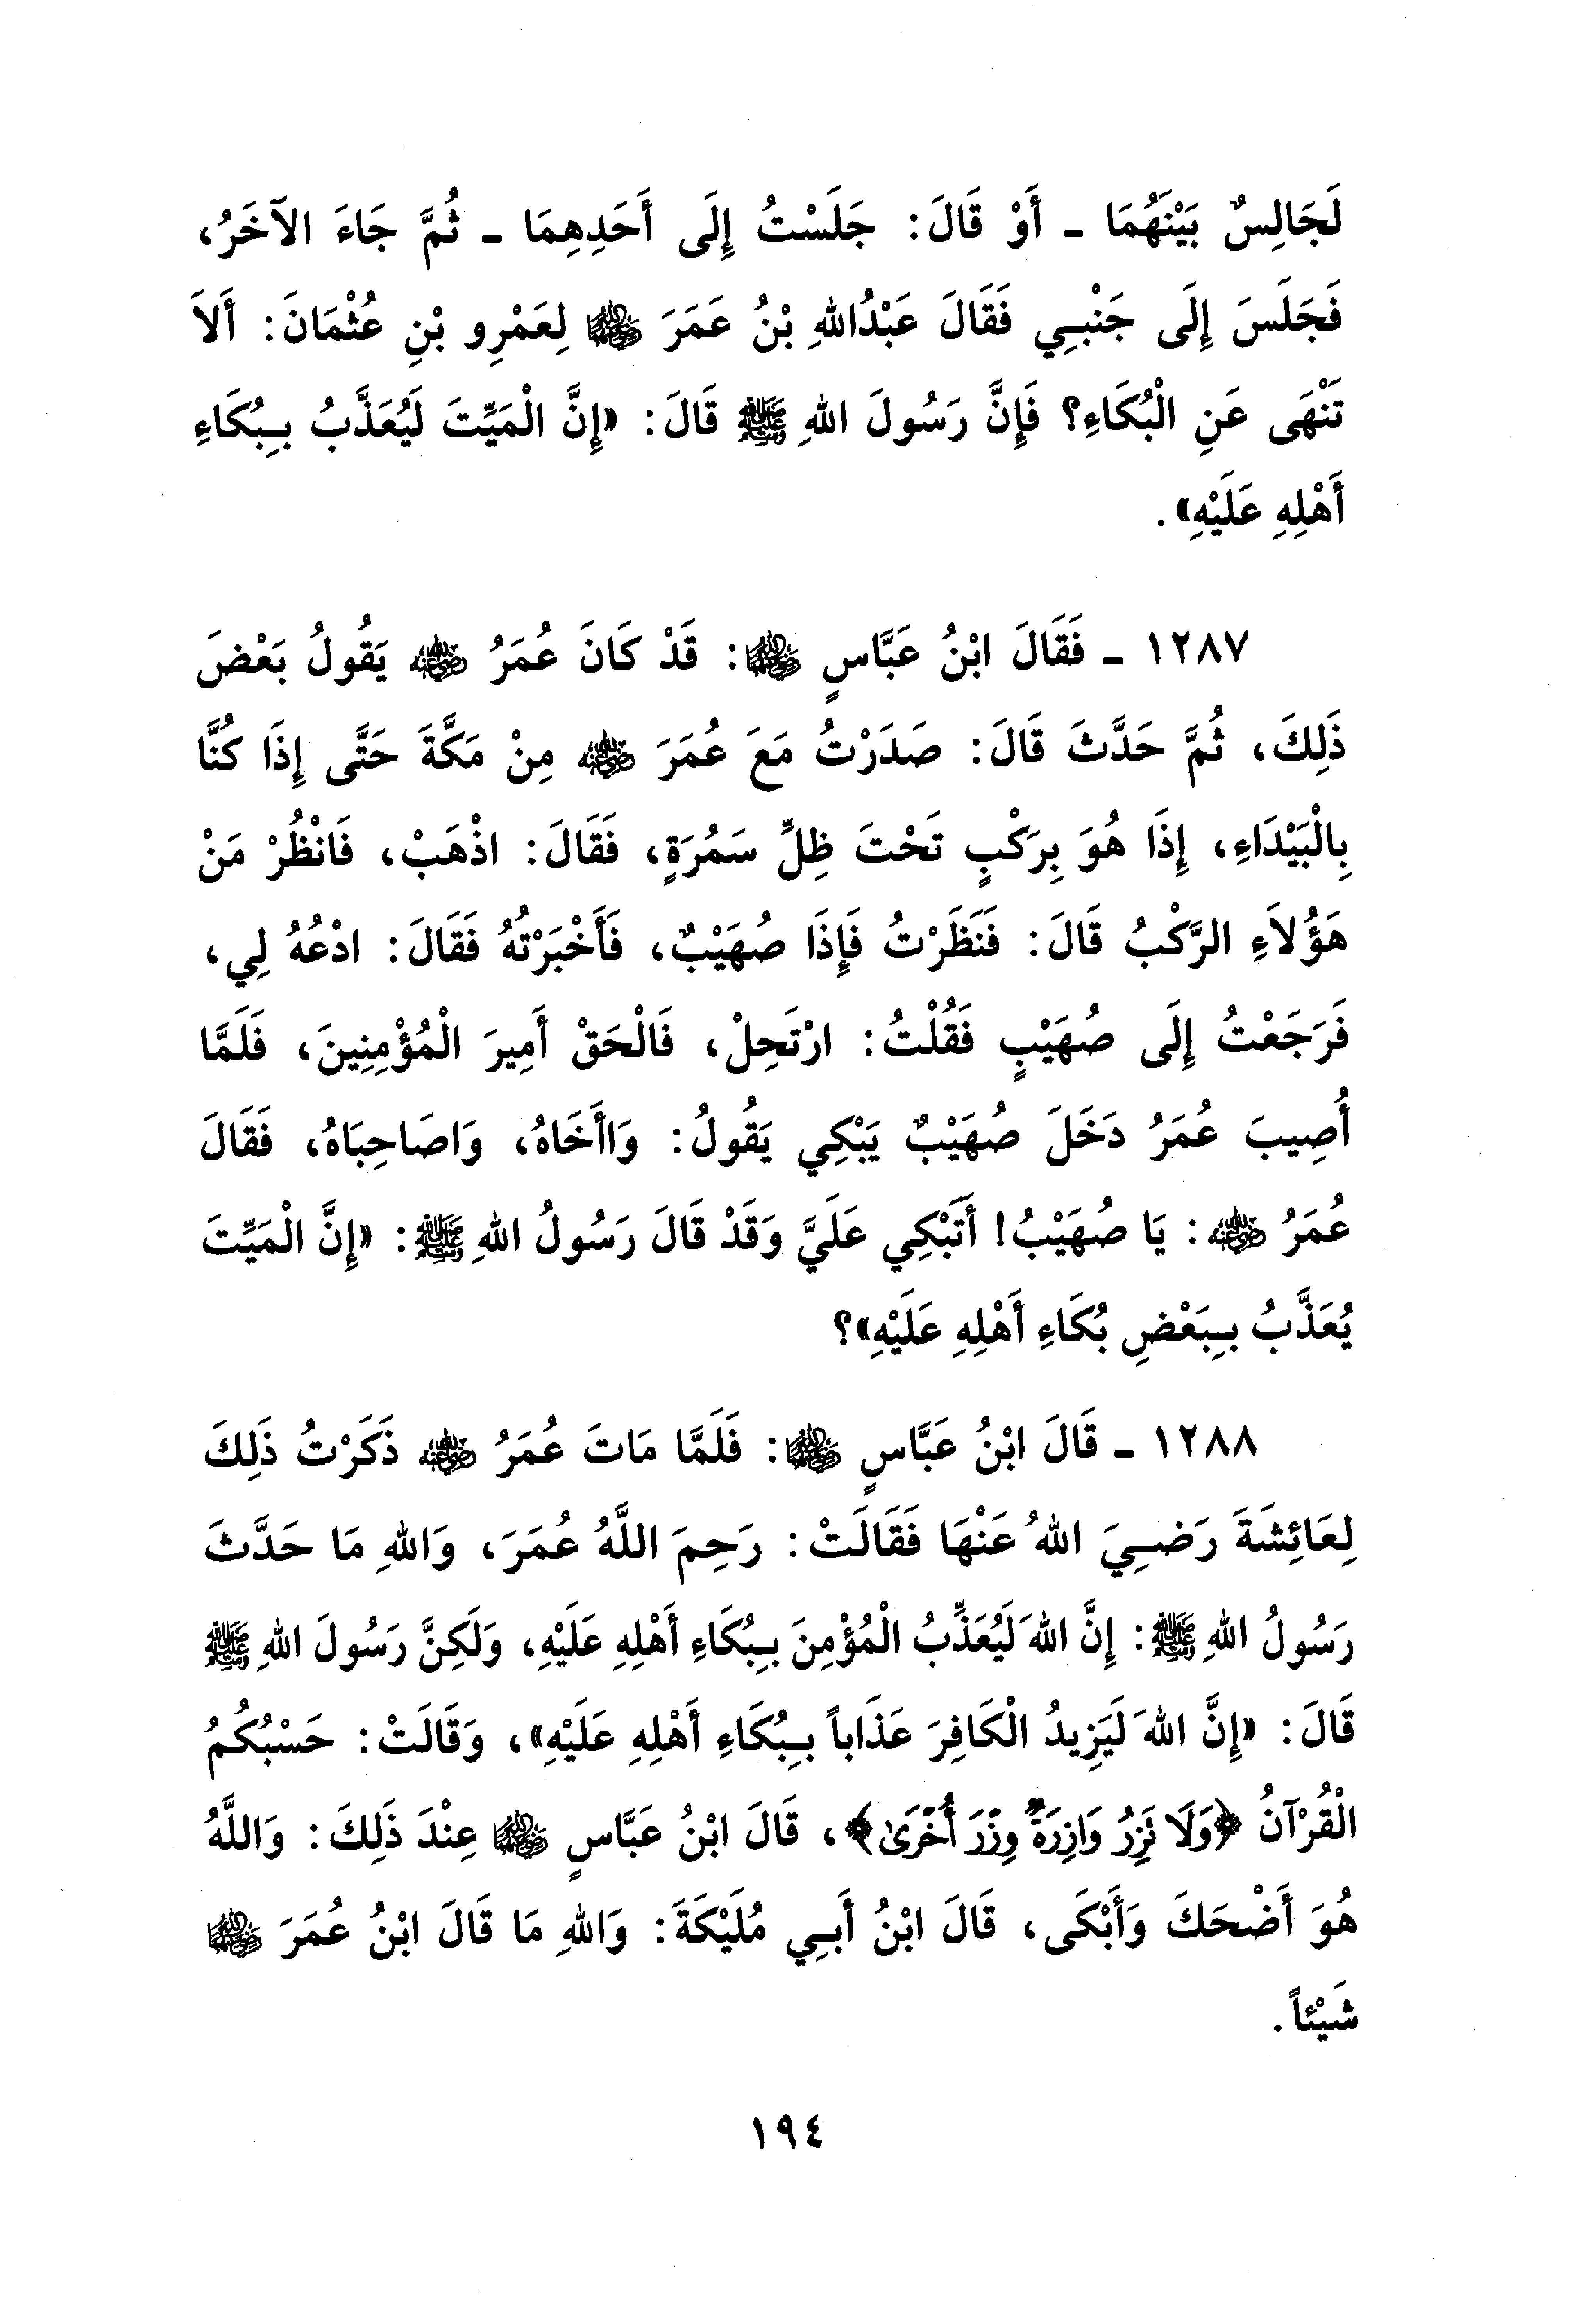 لَجَالِسٌ بَيْنَهُمَا ـ أَوْ قَالَ: جَلَسْتُ إِلَى أَحَدِهِمَا ـ ثُمَّ جَاءَ الآخَرُ،
فَجَلَسَ إِلَى جَنْبِي فَقَالَ عَبْدُاللهِ بْنُ عَمَرَ رضي الله عنهما لِعَمْرِو بْنِ عُثْمَانَ: أَلاَ
تَنْهَى عَنِ الْبُكَاءِ؟ فَإِنَّ رَسُولَ اللهِ ﷺ قَالَ: «إِنَّ الْمَيِّتَ لَيُعَذَّبُ بِبُكَاءِ
أَهْلِهِ عَلَيْهِ».
١٢٨٧ ـ فَقَالَ ابْنُ عَبَّاسٍ رضي الله عنهما: قَدْ كَانَ عُمَرُ رضي الله عنه يَقُولُ بَعْضَ
ذَلِكَ، ثُمَّ حَدَّثَ قَالَ: صَدَرْتُ مَعَ عُمَرَ رضي الله عنه مِنْ مَكَّةَ حَتَّى إِذَا كُنَّا
بِالْبَيْدَاءِ، إِذَا هُوَ بِرَكْبٍ تَحْتَ ظِلِّ سَمُرَةٍ، فَقَالَ: اذْهَبْ، فَانْظُرْ مَنْ
هَؤُلاَءِ الرَّكْبُ قَالَ: فَنَظَرْتُ فَإِذَا صُهَيْبٌ، فَأَخْبَرْتهُ فَقَالَ: ادْعُهُ لِي،
فَرَجَعْتُ إِلَى صُهَيْبٍ فَقُلْتُ: ارْتَحِلْ، فَالْحَقْ أَمِيرَ الْمُؤْمِنِينَ، فَلَمَّا
أُصِيبَ عُمَرُ دَخَلَ صُهَيْبٌ يَبْكِي يَقُولُ: وَاأَخَاهُ، وَاصَاحِبَاهُ، فَقَالَ
عُمَرُ رضي الله عنه: يَا صُهَيْبُ! أَتَبْكِي عَلَيَّ وَقَدْ قَالَ رَسُولُ اللهِ ﷺ: «إِنَّ الْمَيِّتَ
يُعَذَّبُ بِبَعْضِ بُكَاءِ أَهْلِهِ عَلَيْهِ»؟
١٢٨٨ ـ قَالَ ابْنُ عَبَّاسٍ رضي الله عنهما: فَلَمَّا مَاتَ عُمَرُ رضي الله عنه ذَكَرْتُ ذَلِكَ
لِعَائِشَةَ رَضِيَ اللهُ عَنْهَا فَقَالَتْ: رَحِمَ اللَّهُ عُمَرَ، وَاللهِ مَا حَدَّثَ
رَسُولُ اللهِ ﷺ: إِنَّ اللهَ لَيُعَذِّبُ الْمُؤْمِنَ بِبُكَاءِ أَهْلِهِ عَلَيْهِ، وَلَكِنَّ رَسُولَ اللهِ ﷺ
قَالَ: «إِنَّ اللهَ لَيَزِيدُ الْكَافِرَ عَذَاباً بِبُكَاءِ أَهْلِهِ عَلَيْهِ»، وَقَالَتْ: حَسْبُكُمُ
الْقُرْآنُ ﴿وَلَا تَزِرُ وَازِرَةٌ وِزْرَ أُخْرَىٰ﴾، قَالَ ابْنُ عَبَّاسٍ رضي الله عنهما عِنْدَ ذَلِكَ: وَاللَّهُ
هُوَ أَضْحَكَ وَأَبْكَى، قَالَ ابْنُ أَبِي مُلَيْكَةَ: وَاللهِ مَا قَالَ ابْنُ عُمَرَ رضي الله عنهما
شَيْئاً.
١٩٤